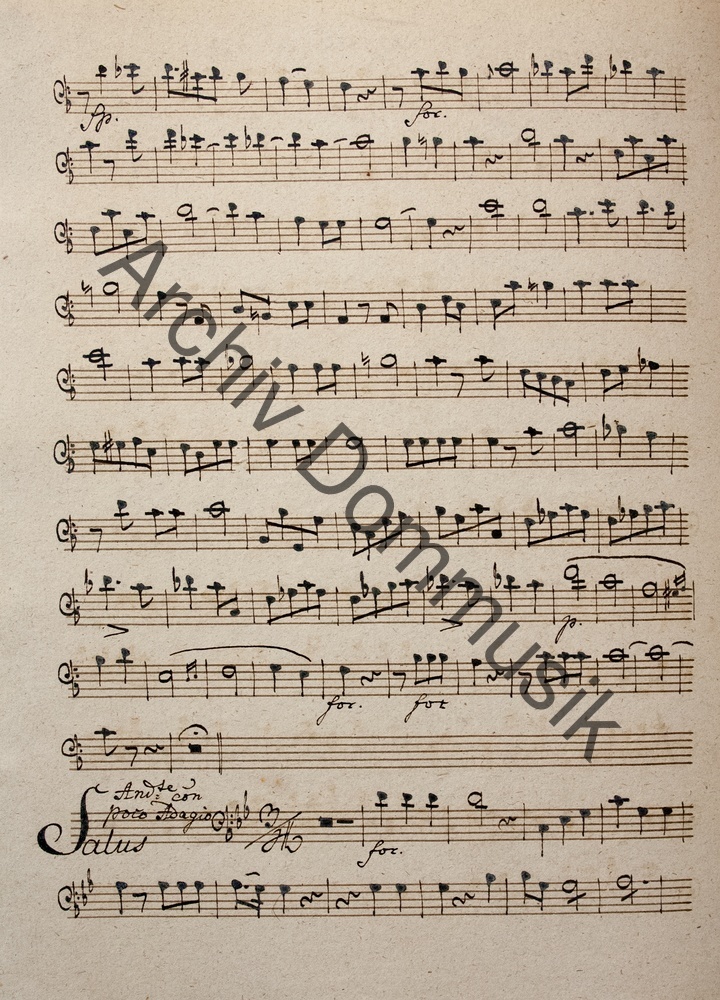 fp. for.
p.
for. for
Andte con
poco Adagio
Salus
for.
Archiv Dommusik